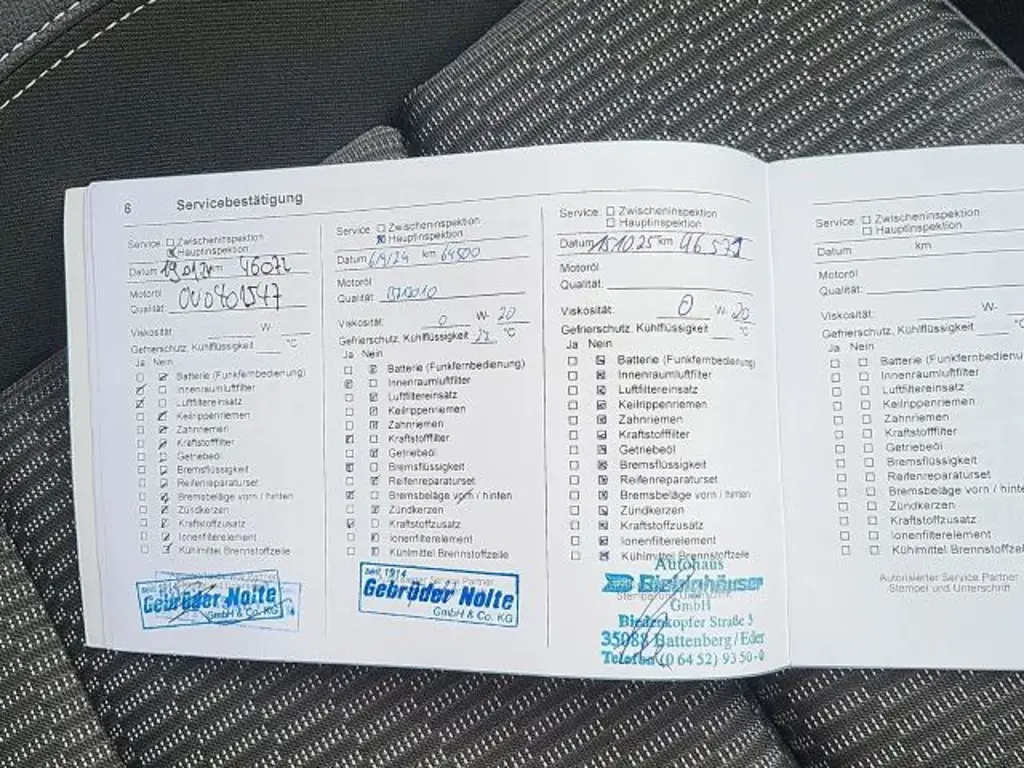 6 Servicebestätigung
Service: ☐ Zwischeninspektion
☒ Hauptinspektion
Datum 19.01.24 km 46072
Motoröl
Qualität:
Viskosität: W-
Gefrierschutz, Kühlflüssigkeit °C
Ja Nein
☐ ☑ Batterie (Funkfernbedienung)
☑ ☐ Innenraumluftfilter
☑ ☐ Luftfiltereinsatz
☐ ☑ Keilrippenriemen
☐ ☑ Zahnriemen
☐ ☑ Kraftstofffilter
☐ ☐ Getriebeöl
☐ ☑ Bremsflüssigkeit
☐ ☑ Reifenreparaturset
☐ ☑ Bremsbeläge vorn / hinten
☐ ☑ Zündkerzen
☐ ☑ Kraftstoffzusatz
☐ ☑ Ionenfilterelement
☐ ☑ Kühlmittel Brennstoffzelle
seit 1914
Gebrüder Nolte
GmbH & Co. KG
Service: ☐ Zwischeninspektion
☒ Hauptinspektion
Datum 6/9/24 km 64500
Motoröl
Qualität:
Viskosität: 0 W- 20
Gefrierschutz, Kühlflüssigkeit °C
Ja Nein
☐ ☑ Batterie (Funkfernbedienung)
☑ ☐ Innenraumluftfilter
☐ ☑ Luftfiltereinsatz
☐ ☑ Keilrippenriemen
☐ ☑ Zahnriemen
☑ ☐ Kraftstofffilter
☐ ☑ Getriebeöl
☑ ☐ Bremsflüssigkeit
☐ ☑ Reifenreparaturset
☑ ☐ Bremsbeläge vorn / hinten
☐ ☑ Zündkerzen
☑ ☐ Kraftstoffzusatz
☐ ☑ Ionenfilterelement
☐ ☑ Kühlmittel Brennstoffzelle
seit 1914
Gebrüder Nolte
GmbH & Co. KG
Service: ☐ Zwischeninspektion
☐ Hauptinspektion
Datum 15.10.25 km
Motoröl
Qualität:
Viskosität: 0 W- 20
Gefrierschutz, Kühlflüssigkeit °C
Ja Nein
☐ ☑ Batterie (Funkfernbedienung)
☐ ☑ Innenraumluftfilter
☐ ☑ Luftfiltereinsatz
☐ ☑ Keilrippenriemen
☐ ☑ Zahnriemen
☐ ☑ Kraftstofffilter
☐ ☑ Getriebeöl
☐ ☑ Bremsflüssigkeit
☐ ☑ Reifenreparaturset
☐ ☑ Bremsbeläge vorn / hinten
☐ ☑ Zündkerzen
☐ ☑ Kraftstoffzusatz
☐ ☑ Ionenfilterelement
☐ ☑ Kühlmittel Brennstoffzelle
Autohaus
GmbH
Biedenkopfer Straße 3
35088 Battenberg / Eder
Telefon (0 64 52) 93 50-0
Service: ☐ Zwischeninspektion
☐ Hauptinspektion
Datum km
Motoröl
Qualität:
Viskosität: W-
Gefrierschutz, Kühlflüssigkeit
Ja Nein
☐ ☐ Batterie (Funkfernbedienu
☐ ☐ Innenraumluftfilter
☐ ☐ Luftfiltereinsatz
☐ ☐ Keilrippenriemen
☐ ☐ Zahnriemen
☐ ☐ Kraftstofffilter
☐ ☐ Getriebeöl
☐ ☐ Bremsflüssigkeit
☐ ☐ Reifenreparaturset
☐ ☐ Bremsbeläge vorn / hinten
☐ ☐ Zündkerzen
☐ ☐ Kraftstoffzusatz
☐ ☐ Ionenfilterelement
☐ ☐ Kühlmittel Brennstoffzelle
Autorisierter Service Partner
Stempel und Unterschrift